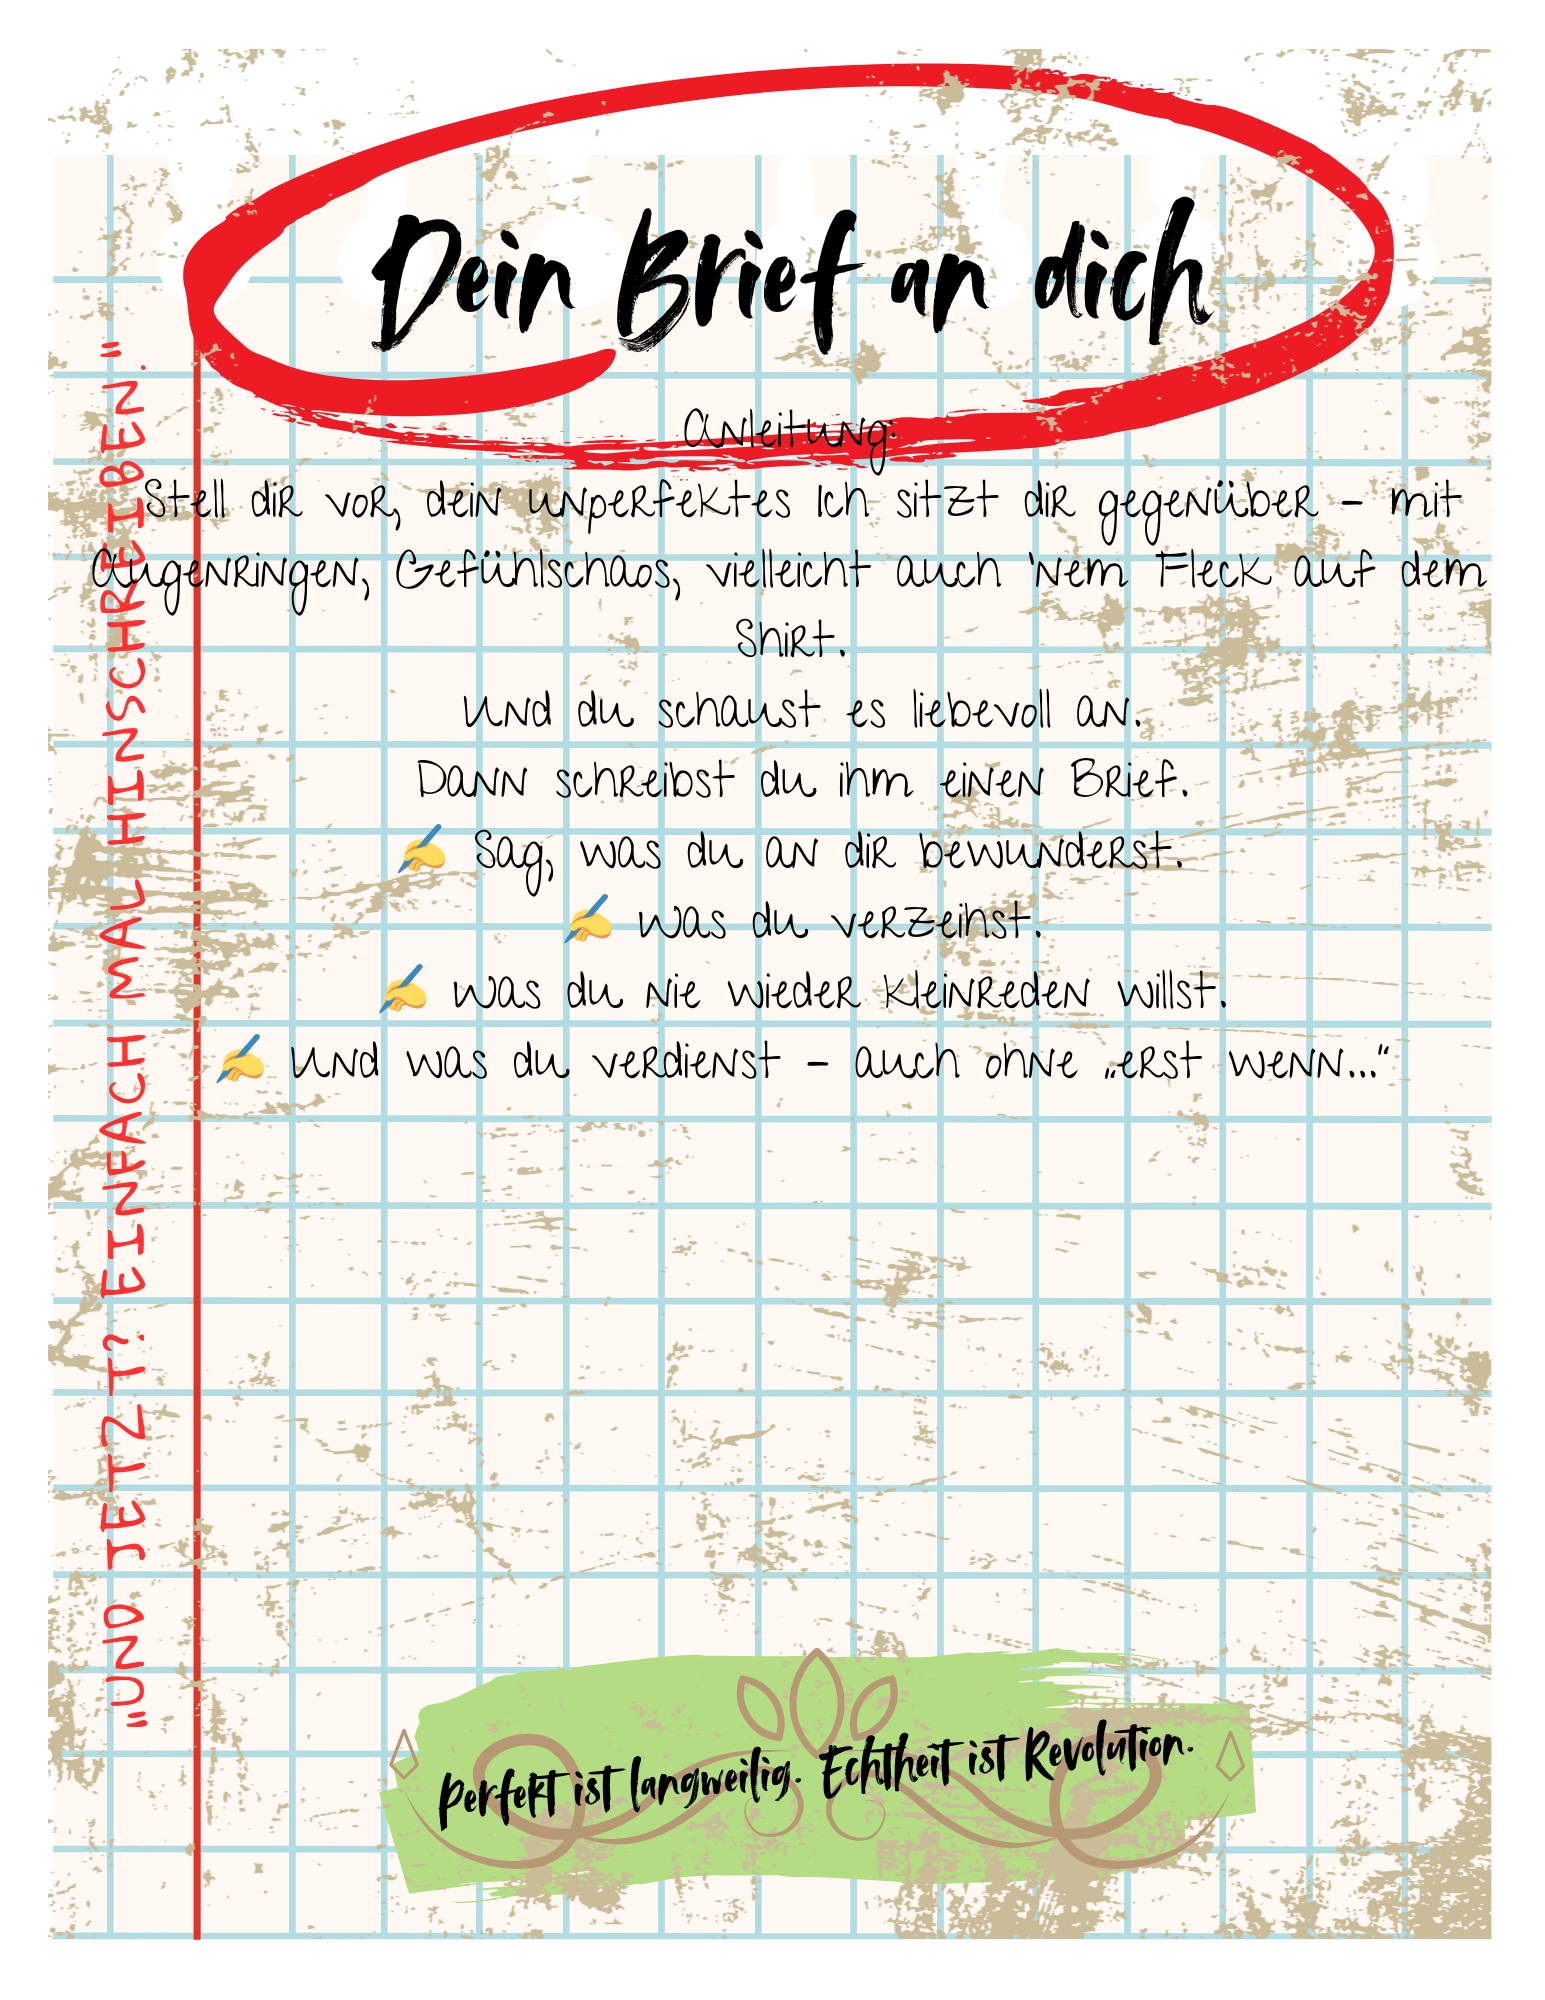 Dein Brief an dich
Anleitung:
Stell dir vor, dein unperfektes Ich sitzt dir gegenüber – mit
Augenringen, Gefühlschaos, vielleicht auch 'nem Fleck auf dem
Shirt.
Und du schaust es liebevoll an.
Dann schreibst du ihm einen Brief.
✍️ Sag, was du an dir bewunderst.
✍️ Was du verzeihst.
✍️ Was du nie wieder kleinreden willst.
✍️ Und was du verdienst – auch ohne „erst wenn…“
"UND JETZT? EINFACH MAL HINSCHREIBEN."
Perfekt ist langweilig. Echtheit ist Revolution.